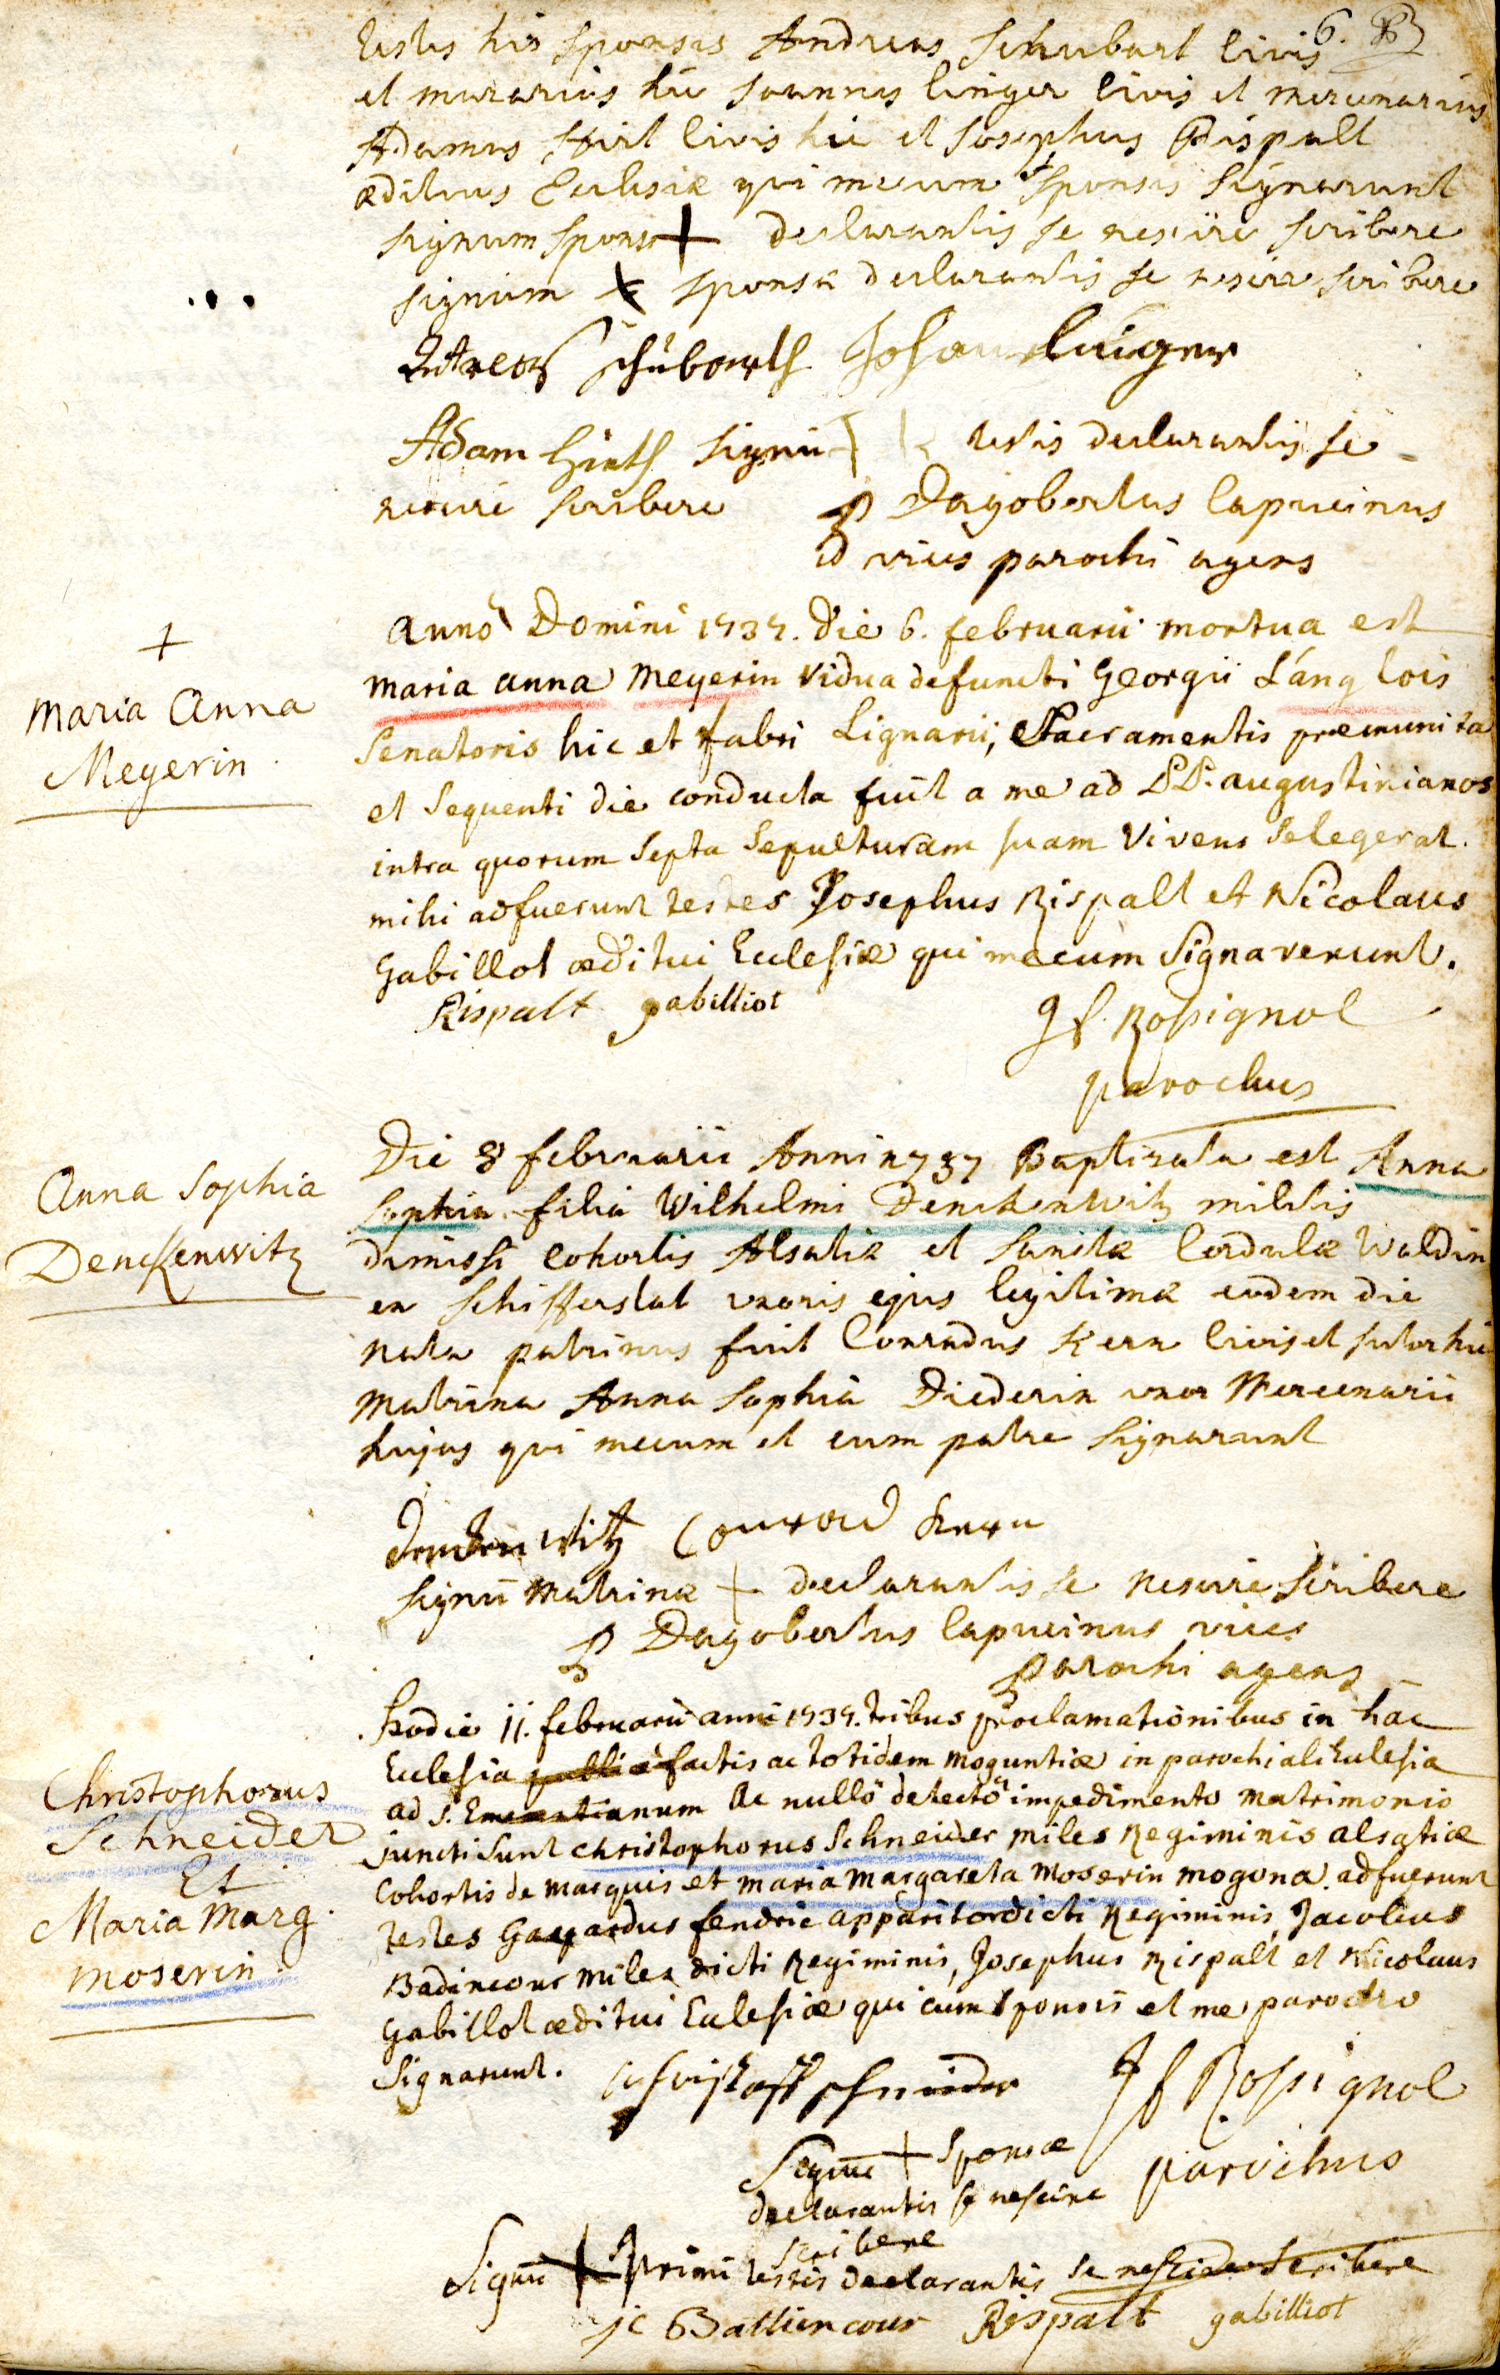 6.
testes his sponsis Andreas Schubart Civis
et murarius hic Joannes Linger Civis et mercenarius
Adamus Hirt Civis hic et Josephus Rispalt
ædituus Ecclesiæ qui mecum et sponsis signarunt
signum sponsi + declarantis se nescire scribere
signum + sponsæ declarantis se nescire scribere
Schubarth Johan
Adam Hirth signū testis declarantis se
nescire scribere P Dagobertus Capucinus
vices parochi agens
+
Maria Anna
Meyerin
Anno Domini 1737. die 6. februarii mortua est
maria anna Meyerin vidua defuncti Georgii Láng Civis
Senatoris hic et fabri Lignarii, Sacramentis præmunita
et Sequenti die conducta fuit a me ad PP. augustinianos
intra quorum Septa Sepulturam suam Vivens Selegerat.
mihi adfuerunt testes Josephus Rispalt et Nicolaus
Gabillot æditui Ecclesiæ qui mecum Signaverunt.
Rispalt gabilliot
Jf. Rossignol
parochus
Anna Sophia
Denckenwitz
Die 8 februarii Anni 1737 Baptizata est Anna
Sophia filia Wilhelmi Denckenwitz militis
dimissi Cohortis Alsatiæ et Cordulæ Waldin
ex Schifferstat uxoris ejus legitimæ eodem die
nata patrinus fuit Conradus Kern Civis et sutor hic
Matrina Anna Sophia Diederin uxor Mercenarii
hujus qui mecum et cum patre signarunt
Denckenwitz Conrad Kern
signū Matrinæ + declarantis se nescire scribere
P Dagobertus Capucinus vices
parochi agens
Christophorus
Schneider
Et
Maria Marg.
moserin
Hodie 11. februarii anni 1737. tribus proclamationibus in hac
Ecclesia factis ac totidem Moguntiæ in parochiali Ecclesia
ad S. Emeranum Ac nullo detecto impedimento matrimonio
juncti Sunt christophorus Schneider miles Regiminis alsatiæ
Cohortis de Marquis et maria Margareta Moserin mogona. adfuerunt
testes Gaspardus fendric apparitor dicti Regiminis, Jacobus
Badincour miles dicti Regiminis, Josephus Rispalt et Nicolaus
Gabillot æditui Ecclesiæ qui cum sponsis et me parocho
Signarunt.
Jf Rossignol
parochus
Signum + Sponsæ
declarantis se nescire
scribere
Signū + primi testis declarantis se nescire scribere
Rispalt gabilliot